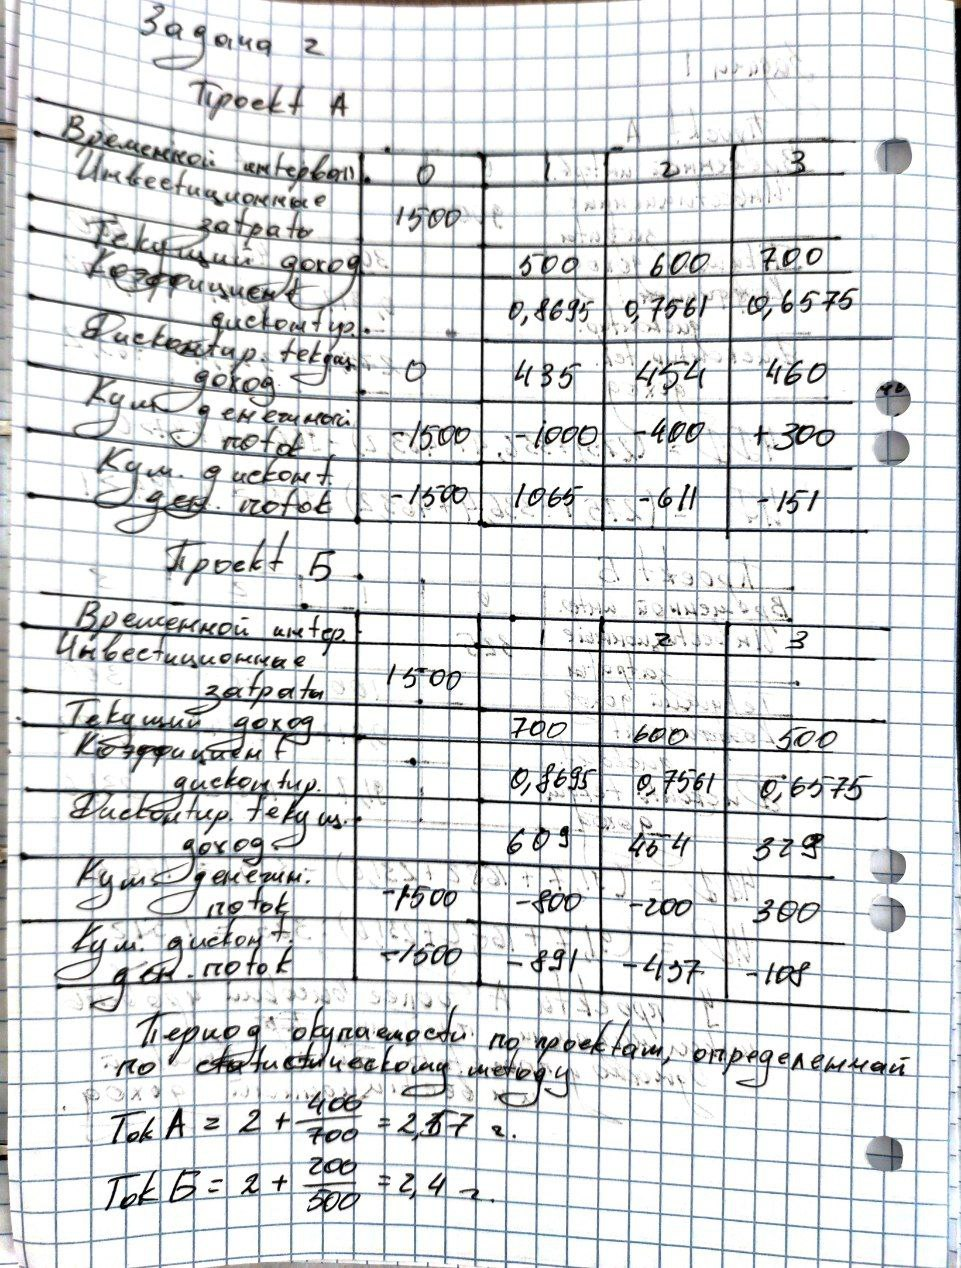 Задача 2
Проект А
Временной интервал 0 1 2 3
Инвестиционные
затраты 1500
Текущий доход 500 600 700
Коэффициент
дисконтир. 0,8695 0,7561 0,6575
Дисконтир. текущ.
доход 0 435 454 460
Кум. денежный
поток -1500 -1000 -400 +300
Кум. дисконт.
ден. поток -1500 1065 -611 -151
Проект Б
Временной интер. 1 2 3
Инвестиционные
затраты 1500
Текущий доход 700 600 500
Коэффициент
дисконтир. 0,8695 0,7561 0,6575
Дисконтир. текущ.
доход 609 454 329
Кум. денежн.
поток -1500 -800 -200 300
Кум. дисконт.
ден. поток -1500 -891 -437 -108
Период окупаемости по проектам, определенный
по статистическому методу
Ток А = 2 + 400/700 = 2,57 г.
Ток Б = 2 + 200/500 = 2,4 г.